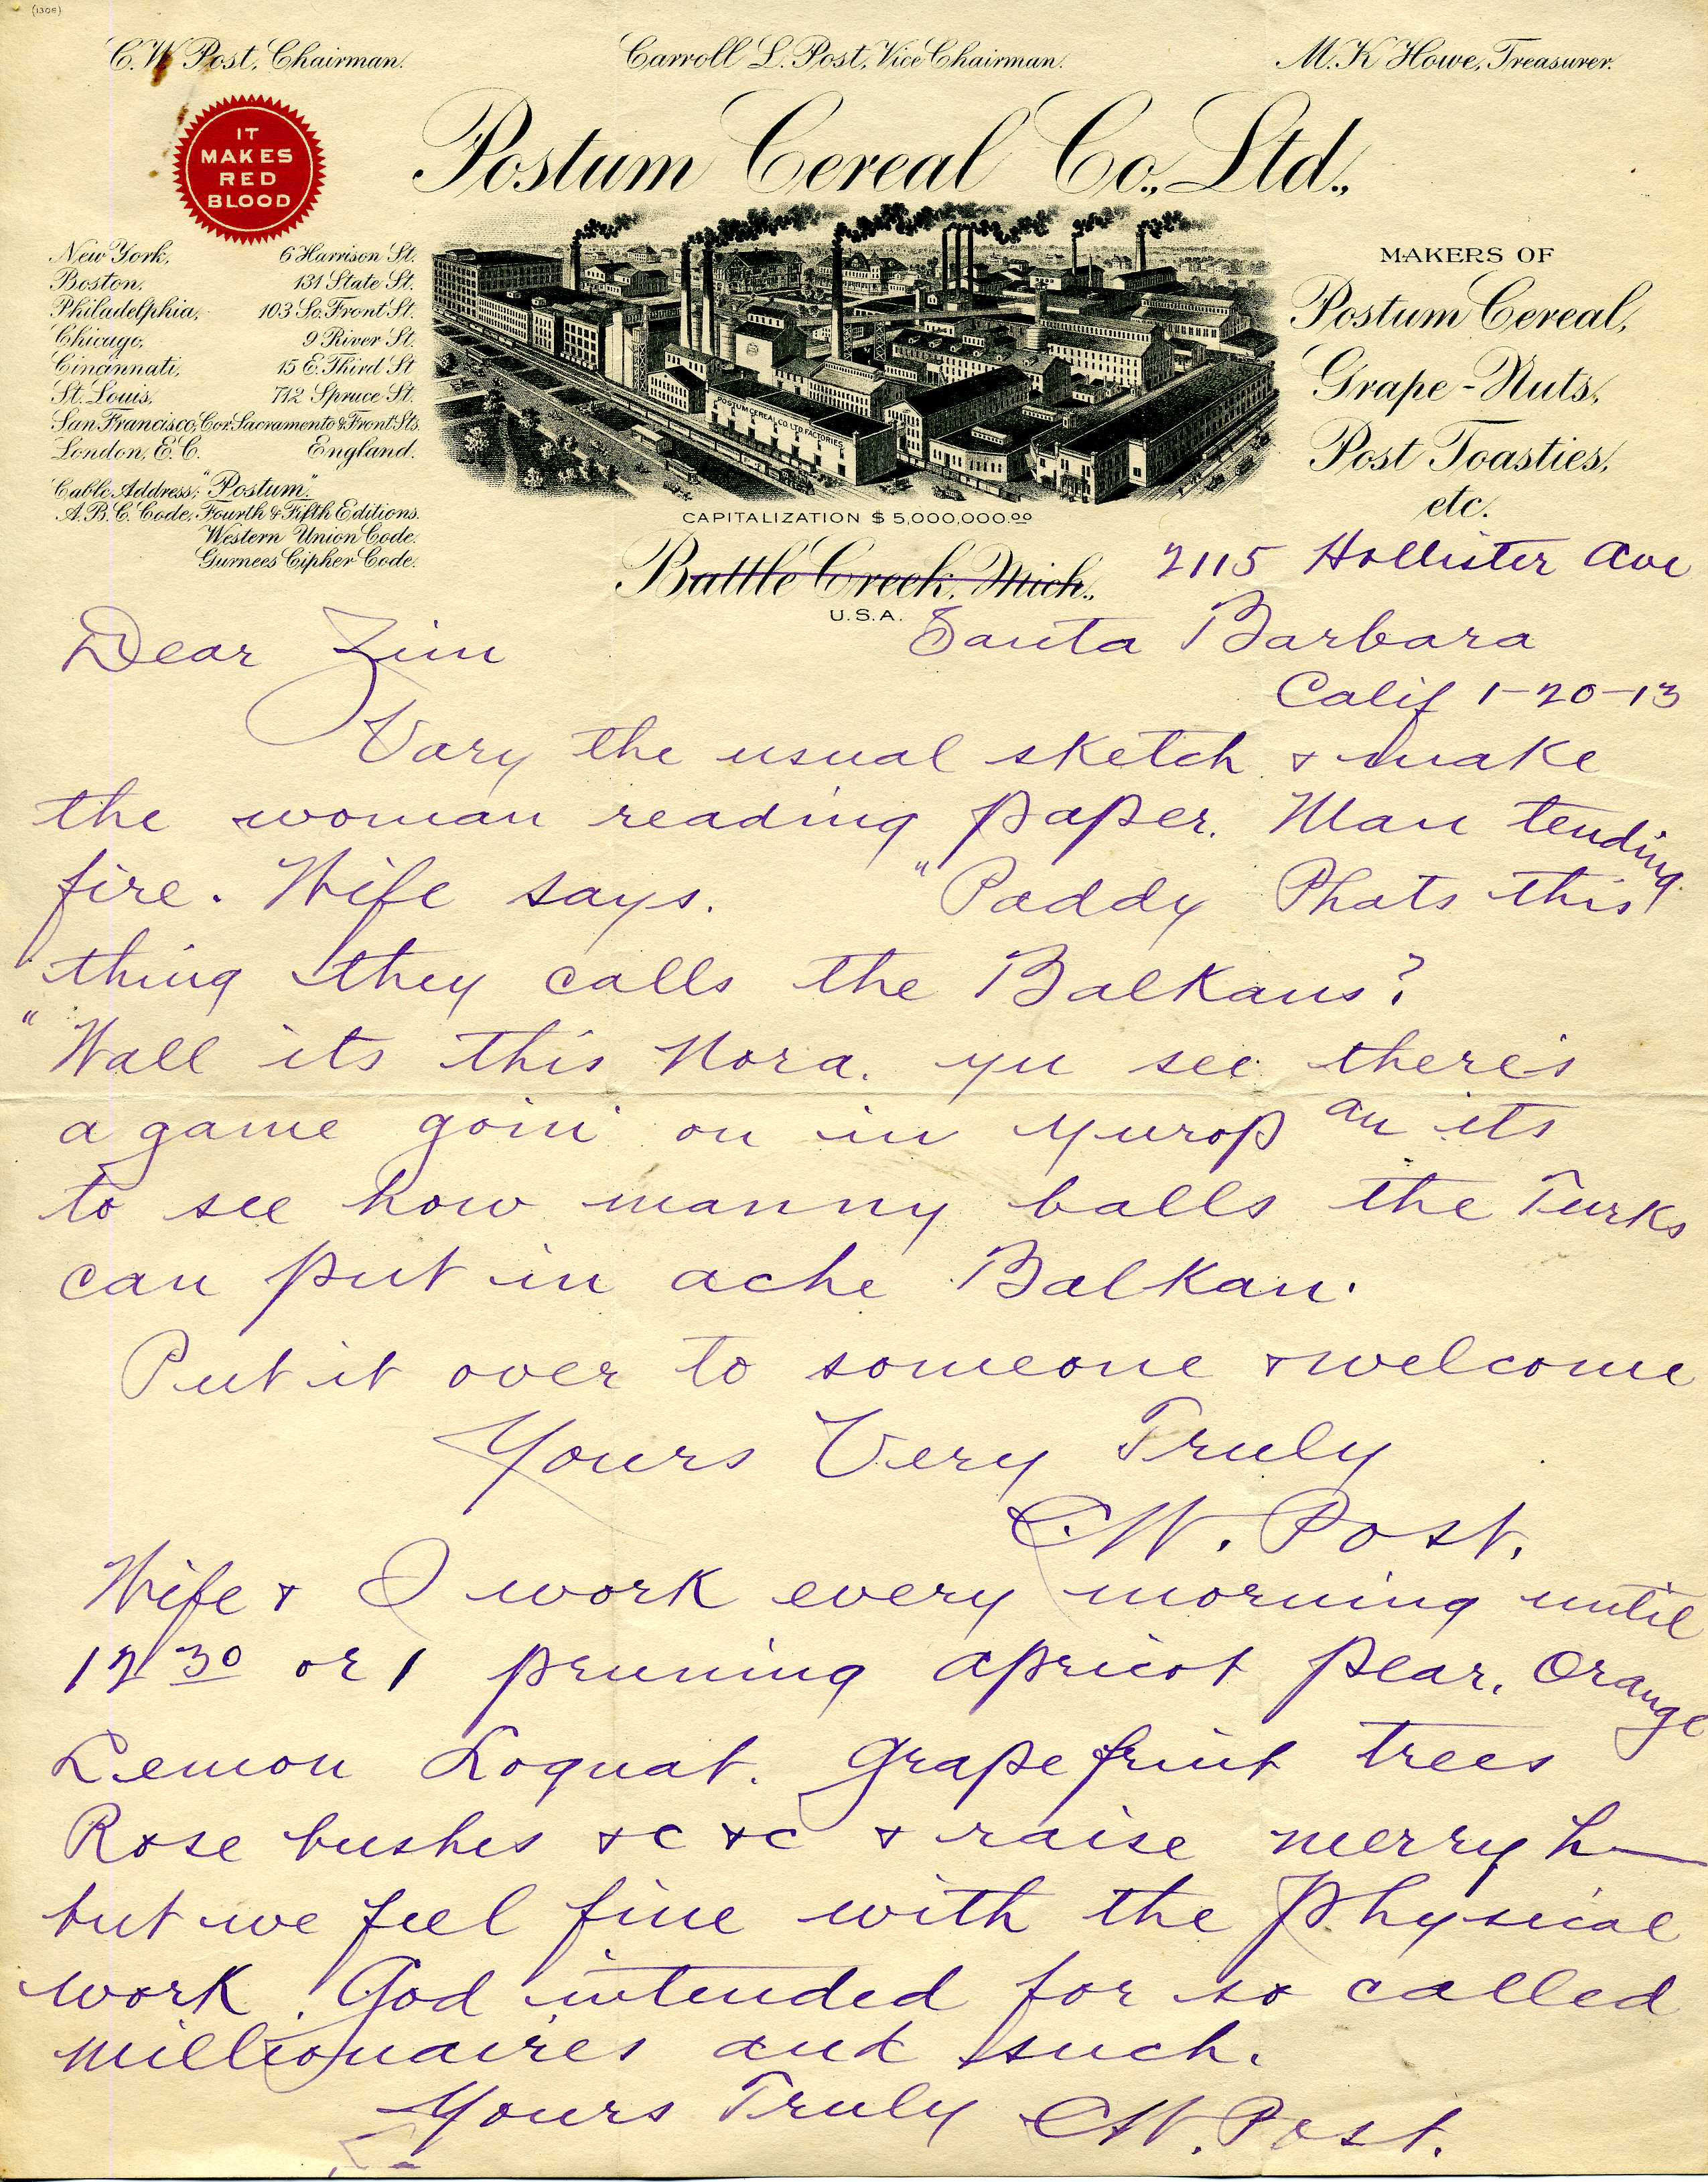 (1306)
C. W. Post, Chairman.
Carroll L. Post, Vice Chairman.
M. K. Howe, Treasurer.
IT
MAKES
RED
BLOOD
Postum Cereal Co., Ltd.,
New York, 6 Harrison St.
Boston, 131 State St.
Philadelphia, 103 So. Front St.
Chicago, 9 River St.
Cincinnati, 15 E. Third St
St. Louis, 712 Spruce St.
San Francisco, Cor. Sacramento & Front Sts.
London, E.C. England.
Cable Address, "Postum".
A.B.C. Code, Fourth & Fifth Editions.
Western Union Code.
Gurnees Cipher Code.
POSTUM CEREAL CO. LTD. FACTORIES
MAKERS OF
Postum Cereal,
Grape-Nuts,
Post Toasties,
etc.
CAPITALIZATION $5,000,000.00
Battle Creek, Mich.,
U.S.A.
2115 Hollister Ave
Santa Barbara
Calif 1-20-13
Dear Zim
Vary the usual sketch & make
the woman reading paper. Man tending
fire. Wife says. "Paddy Phats this
thing they calls the Balkans?
"Wall its this Nora. yu see there's
a game goin' on in yurop an its
to see how manny balls the Turks
can put in ache Balkan.
Put it over to someone & welcome
Yours Very Truly
CW. Post.
Wife & I work every morning until
12 30 or 1 pruning apricot pear, Orange
Lemon Loquat. Grapefruit trees
Rose bushes &c &c & raise merry h—
but we feel fine with the physical
work God intended for so called
millionaires and such.
Yours Truly CW. Post.